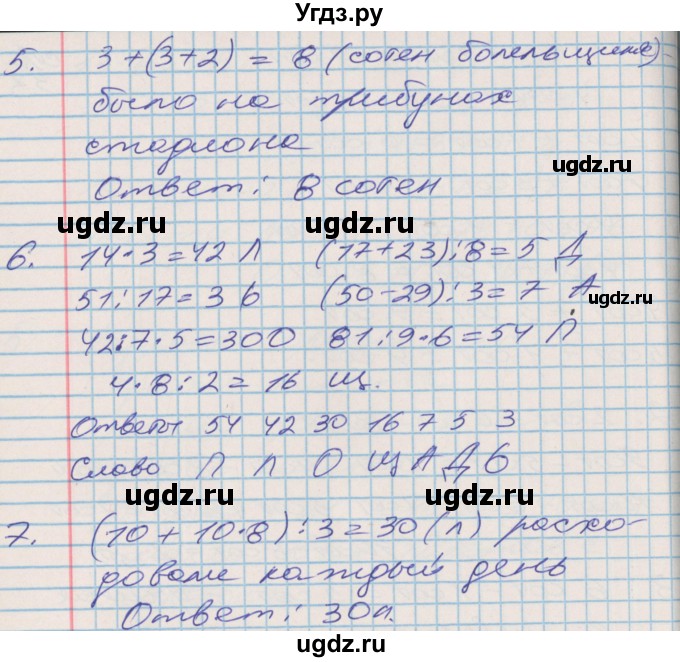 Угдз.ру
5. 3+(3+2) = 8 (сотен болельщиков)
было на трибунах
стадиона
Ответ: 8 сотен
ugdz.ru
ugdz.ru ugdz.ru
6. 14·3=42 Л (17+23):8=5 Д
51:17=3 Ь (50-29):3=7 А
ugdz.ru
42:7·5=30 О 81:9·6=54 П
ugdz.ru ugdz.ru
4·8:2=16 Щ.
Ответы 54 42 30 16 7 5 3
Слово П Л О Щ А Д Ь
ugdz.ru ugdz.ru
7. (10+10·8):3=30 (л) расхо-
довали каждый день
ugdz.ru
Ответ: 30л.
ugdz.ru